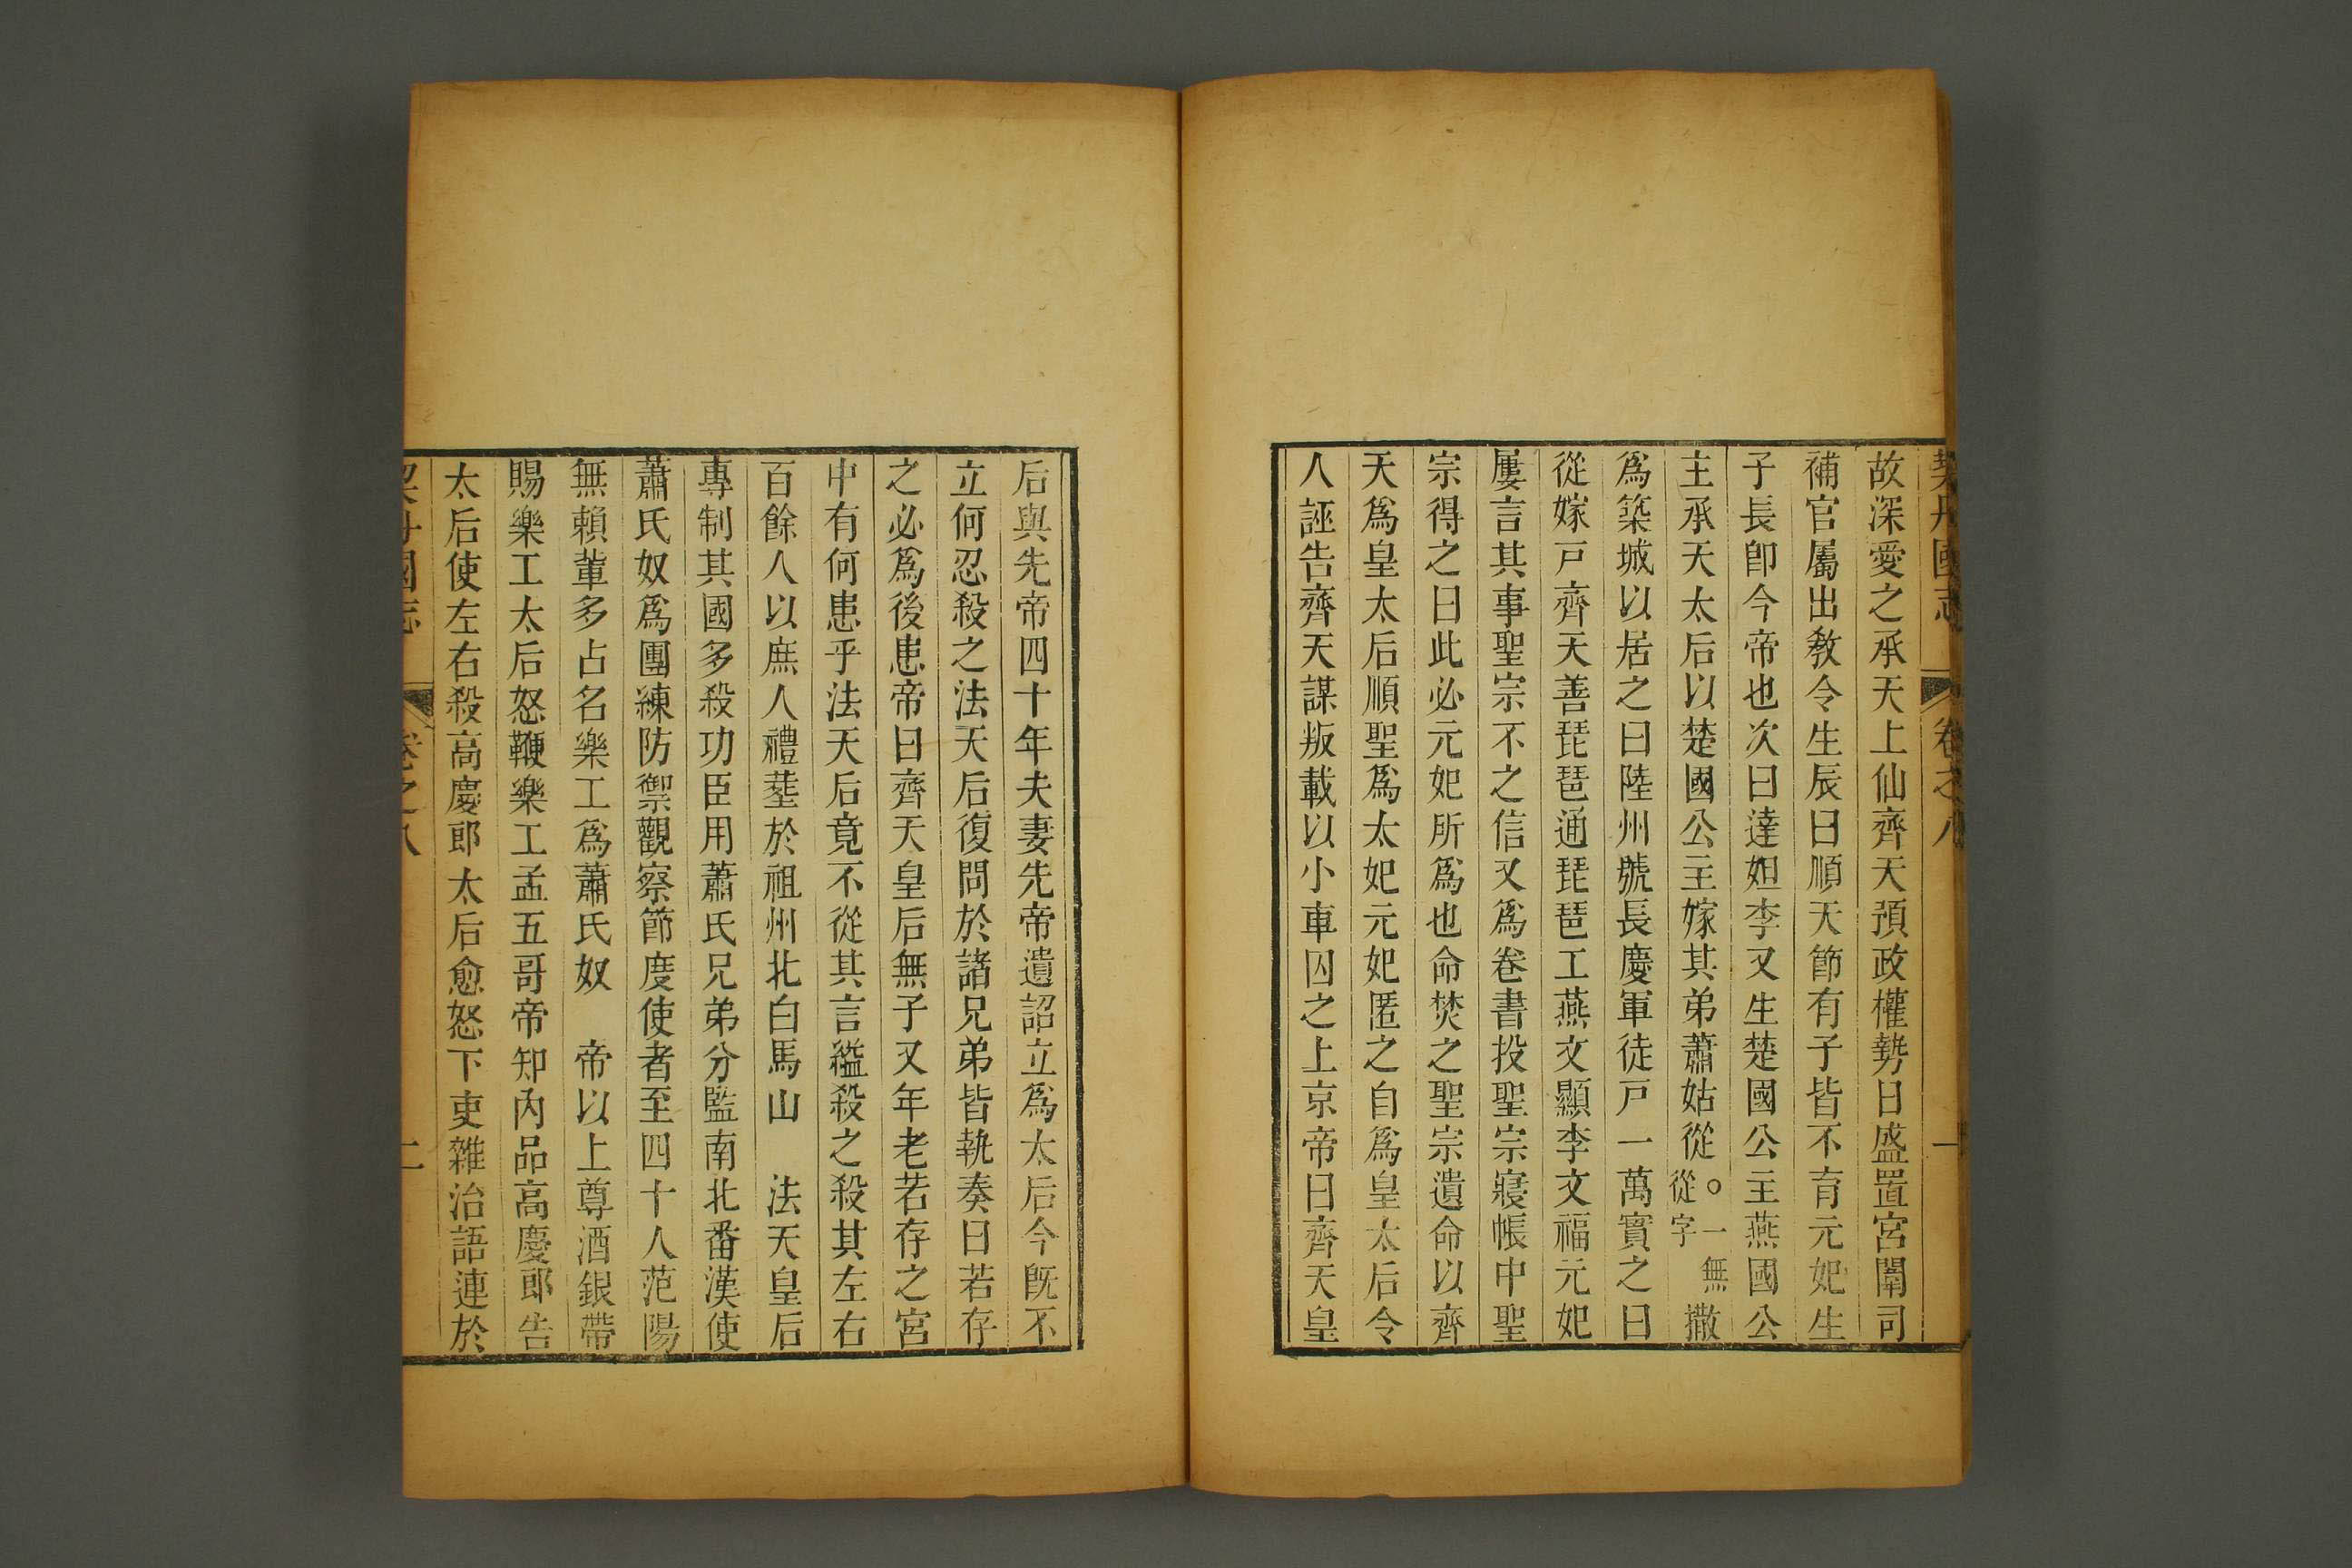 契丹國志 卷之八 一
故深愛之承天上仙齊天預政權勢日盛置宮闈司
補官屬出教令生辰曰順天節有子皆不育元妃生
子長卽今帝也次曰達妲李又生楚國公主燕國公
主承天太后以楚國公主嫁其弟蕭姑從。一無從字撒
爲築城以居之曰陸州號長慶軍徒戸一萬實之曰
從嫁戸齊天善琵琶通琵琶工燕文顯李文福元妃
屢言其事聖宗不之信又爲卷書投聖宗寢帳中聖
宗得之曰此必元妃所爲也命焚之聖宗遺命以齊
天爲皇太后順聖爲太妃元妃匿之自爲皇太后令
人誣告齊天謀叛載以小車囚之上京帝曰齊天皇
后與先帝四十年夫妻先帝遺詔立爲太后今旣不
立何忍殺之法天后復問於諸兄弟皆執奏曰若存
之必爲後患帝曰齊天皇后無子又年老若存之宮
中有何患乎法天后竟不從其言縊殺之殺其左右
百餘人以庶人禮塟於祖州北白馬山　法天皇后
專制其國多殺功臣用蕭氏兄弟分監南北番漢使
蕭氏奴爲團練防禦觀察節度使者至四十人范陽
無賴輩多占名樂工爲蕭氏奴　帝以上尊酒銀帶
賜樂工太后怒鞭樂工孟五哥帝知內品高慶郎告
太后使左右殺高慶郎太后愈怒下吏雜治語連於
契丹國志 卷之八 二